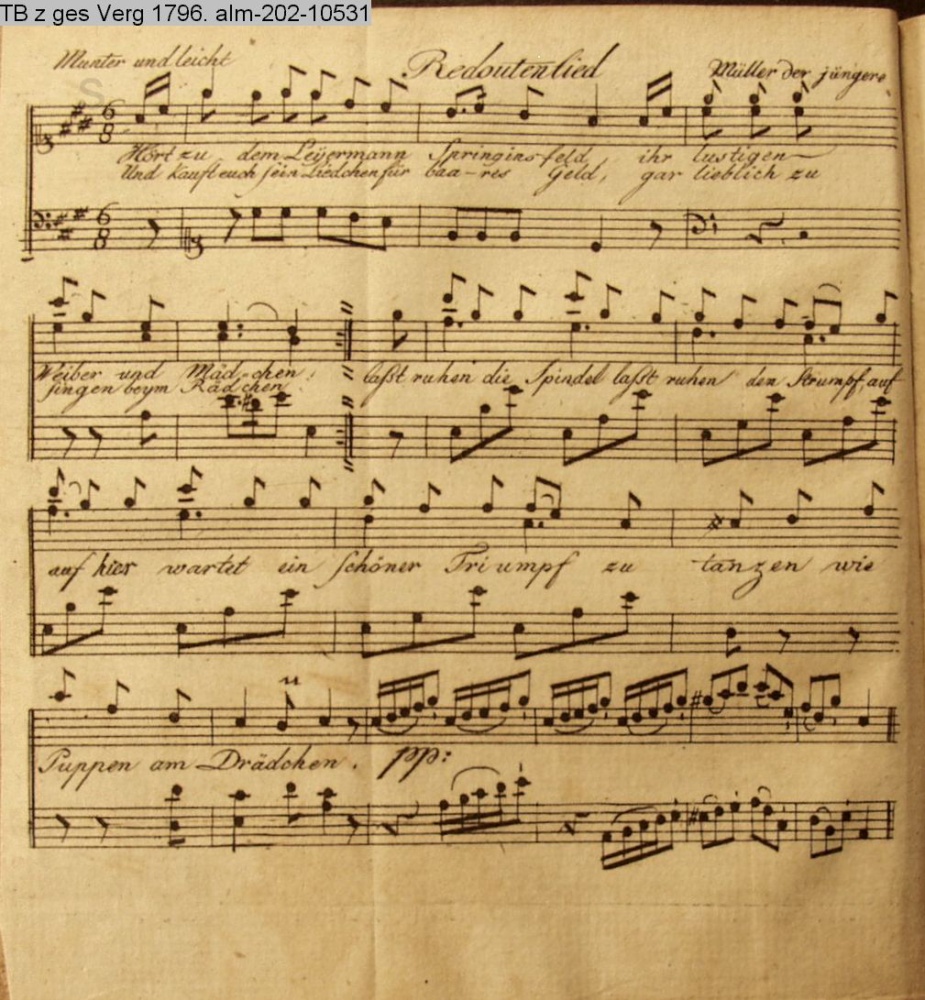 TB z ges Verg 1796. alm-202-10531
Munter und leicht
Redoutenlied
Müller der jüngere
6
8
Hört zu dem Leÿermann Springinsfeld, ihr lustigen
Und kauft euch sein Liedchen für baa-res Geld, gar lieblich zu
6
8
Weiber und Mäd-chen:
singen beym Rädchen:
laßt ruhen die Spindel laßt ruhen den Strumpf, auf
auf hier wartet ein schöner Triumpf zu tanzen wie
Puppen am Drädchen. pp: